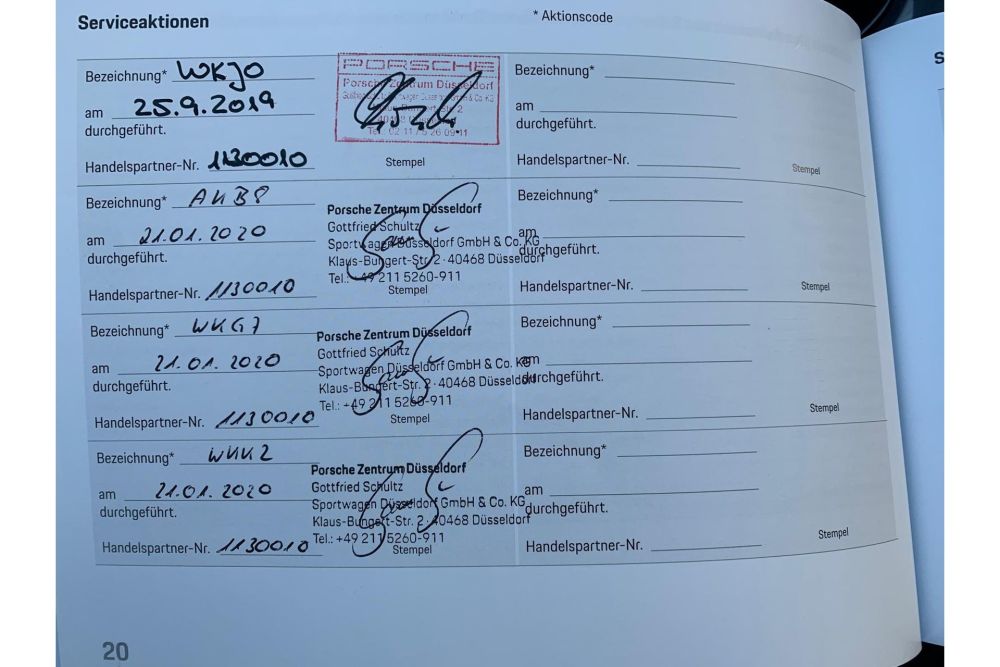 Serviceaktionen
* Aktionscode
Bezeichnung* WKJ0
am 25.9.2019
durchgeführt.
Handelspartner-Nr. 1130010
PORSCHE
Porsche Zentrum Düsseldorf
40468
Tel.: 02 11 / 5 26 09-11
Stempel
Bezeichnung*
am
durchgeführt.
Handelspartner-Nr.
Stempel
Bezeichnung* AKB8
am 21.01.2020
durchgeführt.
Handelspartner-Nr. 1130010
Porsche Zentrum Düsseldorf
Gottfried Schultz
Sportwagen Düsseldorf GmbH & Co. KG
Klaus-Bungert-Str. 2 · 40468 Düsseldorf
Tel.: +49 211 5260-911
Stempel
Bezeichnung*
am
durchgeführt.
Handelspartner-Nr.
Stempel
Bezeichnung* WKG7
am 21.01.2020
durchgeführt.
Handelspartner-Nr. 1130010
Porsche Zentrum Düsseldorf
Gottfried Schultz
Sportwagen Düsseldorf GmbH & Co. KG
Klaus-Bungert-Str. 2 · 40468 Düsseldorf
Tel.: +49 211 5260-911
Stempel
Bezeichnung*
am
durchgeführt.
Handelspartner-Nr.
Stempel
Bezeichnung* WKK2
am 21.01.2020
durchgeführt.
Handelspartner-Nr. 1130010
Porsche Zentrum Düsseldorf
Gottfried Schultz
Sportwagen Düsseldorf GmbH & Co. KG
Klaus-Bungert-Str. 2 · 40468 Düsseldorf
Tel.: +49 211 5260-911
Stempel
Bezeichnung*
am
durchgeführt.
Handelspartner-Nr.
Stempel
20